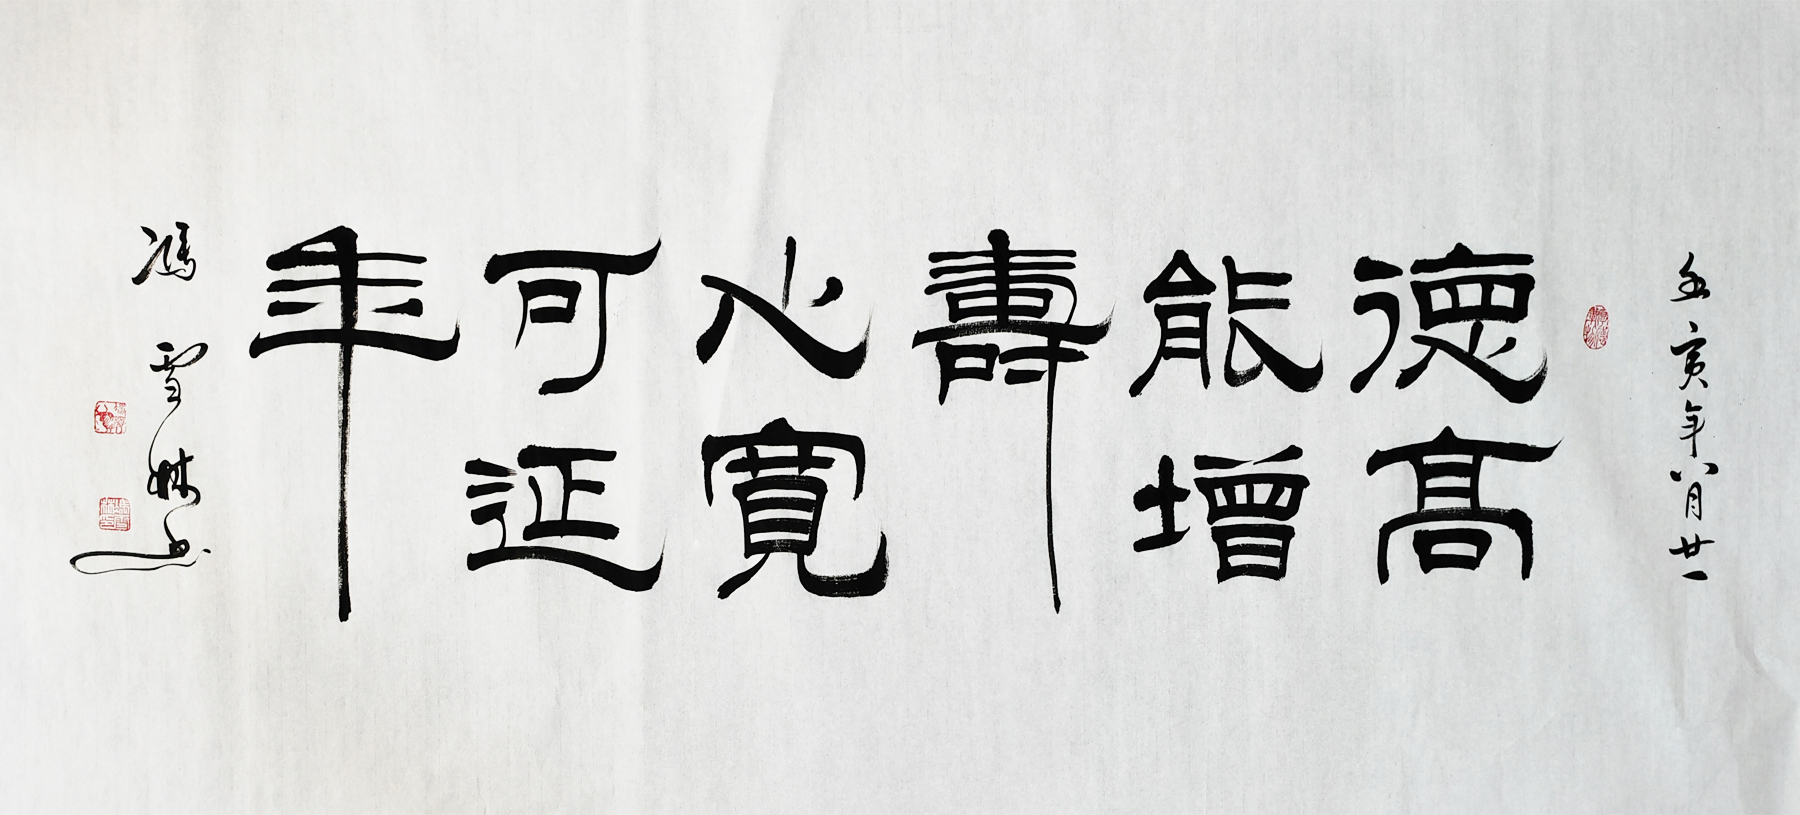 壬寅年八月廿一
德高
能增
壽
心寬
可延
年
馮雪林书